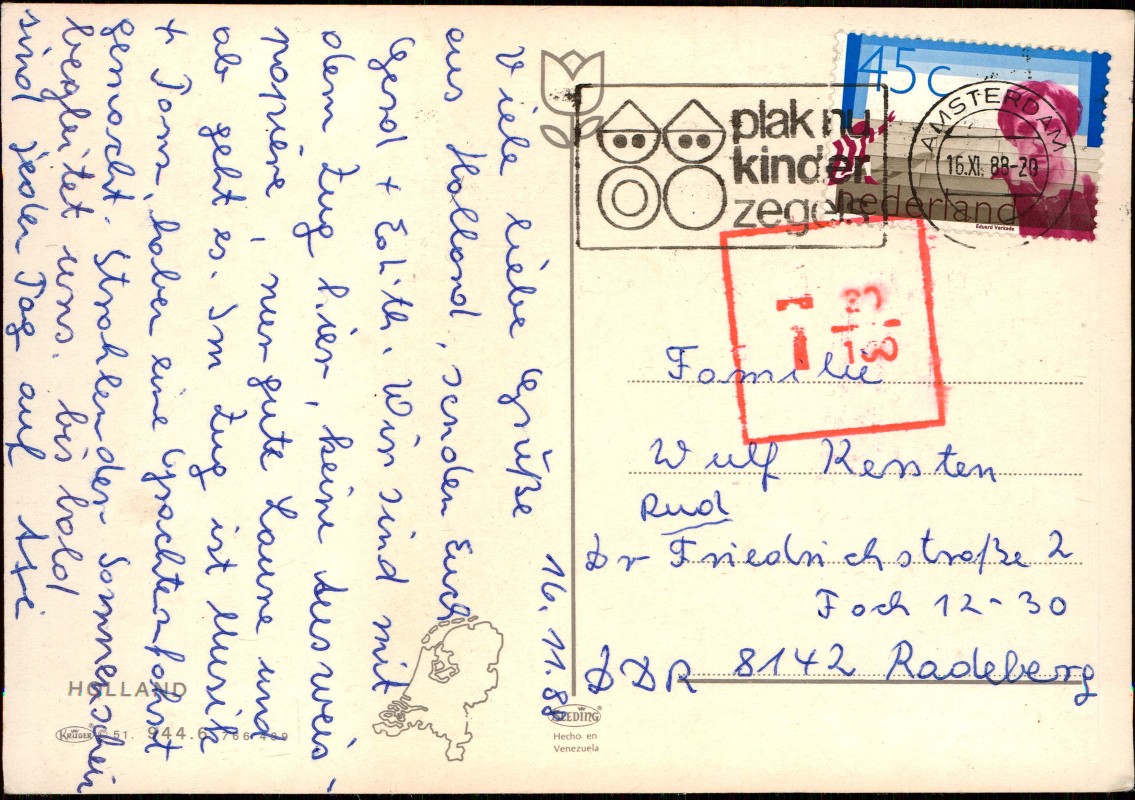 16.11.88
Viele liebe Grüße
aus Holland, senden Euch
Gerd + Edith. Wir sind mit
dem Zug hier, keine Ausweis-
papiere, nur gute Laune und
ab geht es. Im Zug ist Musik
+ Tanz, haben eine Grachtenfahrt
gemacht. Strahlender Sonnenschein
begleitet uns. bis bald
sind jeden Tag auf
45 c
nederland
Eduard Verkade
plak nu
kinder
zegels
AMSTERDAM
16.XI. 88-20
T
100
Familie
Wulf Kersten
Rud
Dr Friedrichstraße 2
Fach 12-30
DDR 8142 Radeberg
HOLLAND
KRÜGER
51. 944.6
Hecho en
Venezuela